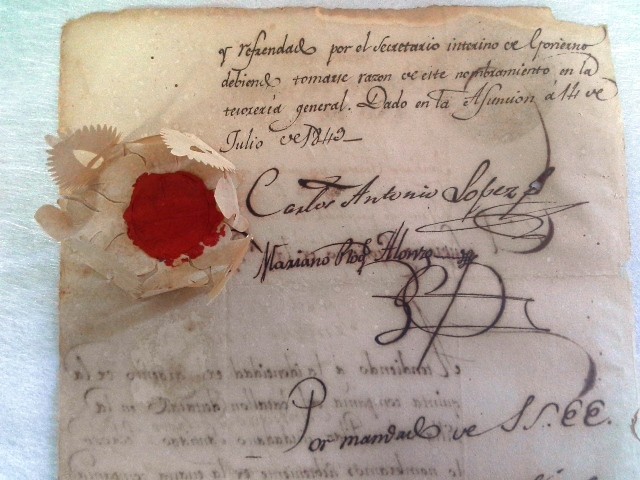 y refrendado por el Secretario interino de Govierno
debiendo tomarse razon de este nombramiento en la
tesoreria general. Dado en la Asuncion á 14 de
Julio de 1843
Carlos Antonio Lopez
Mariano Roq.e Alonzo
Por mandado de SS. EE.